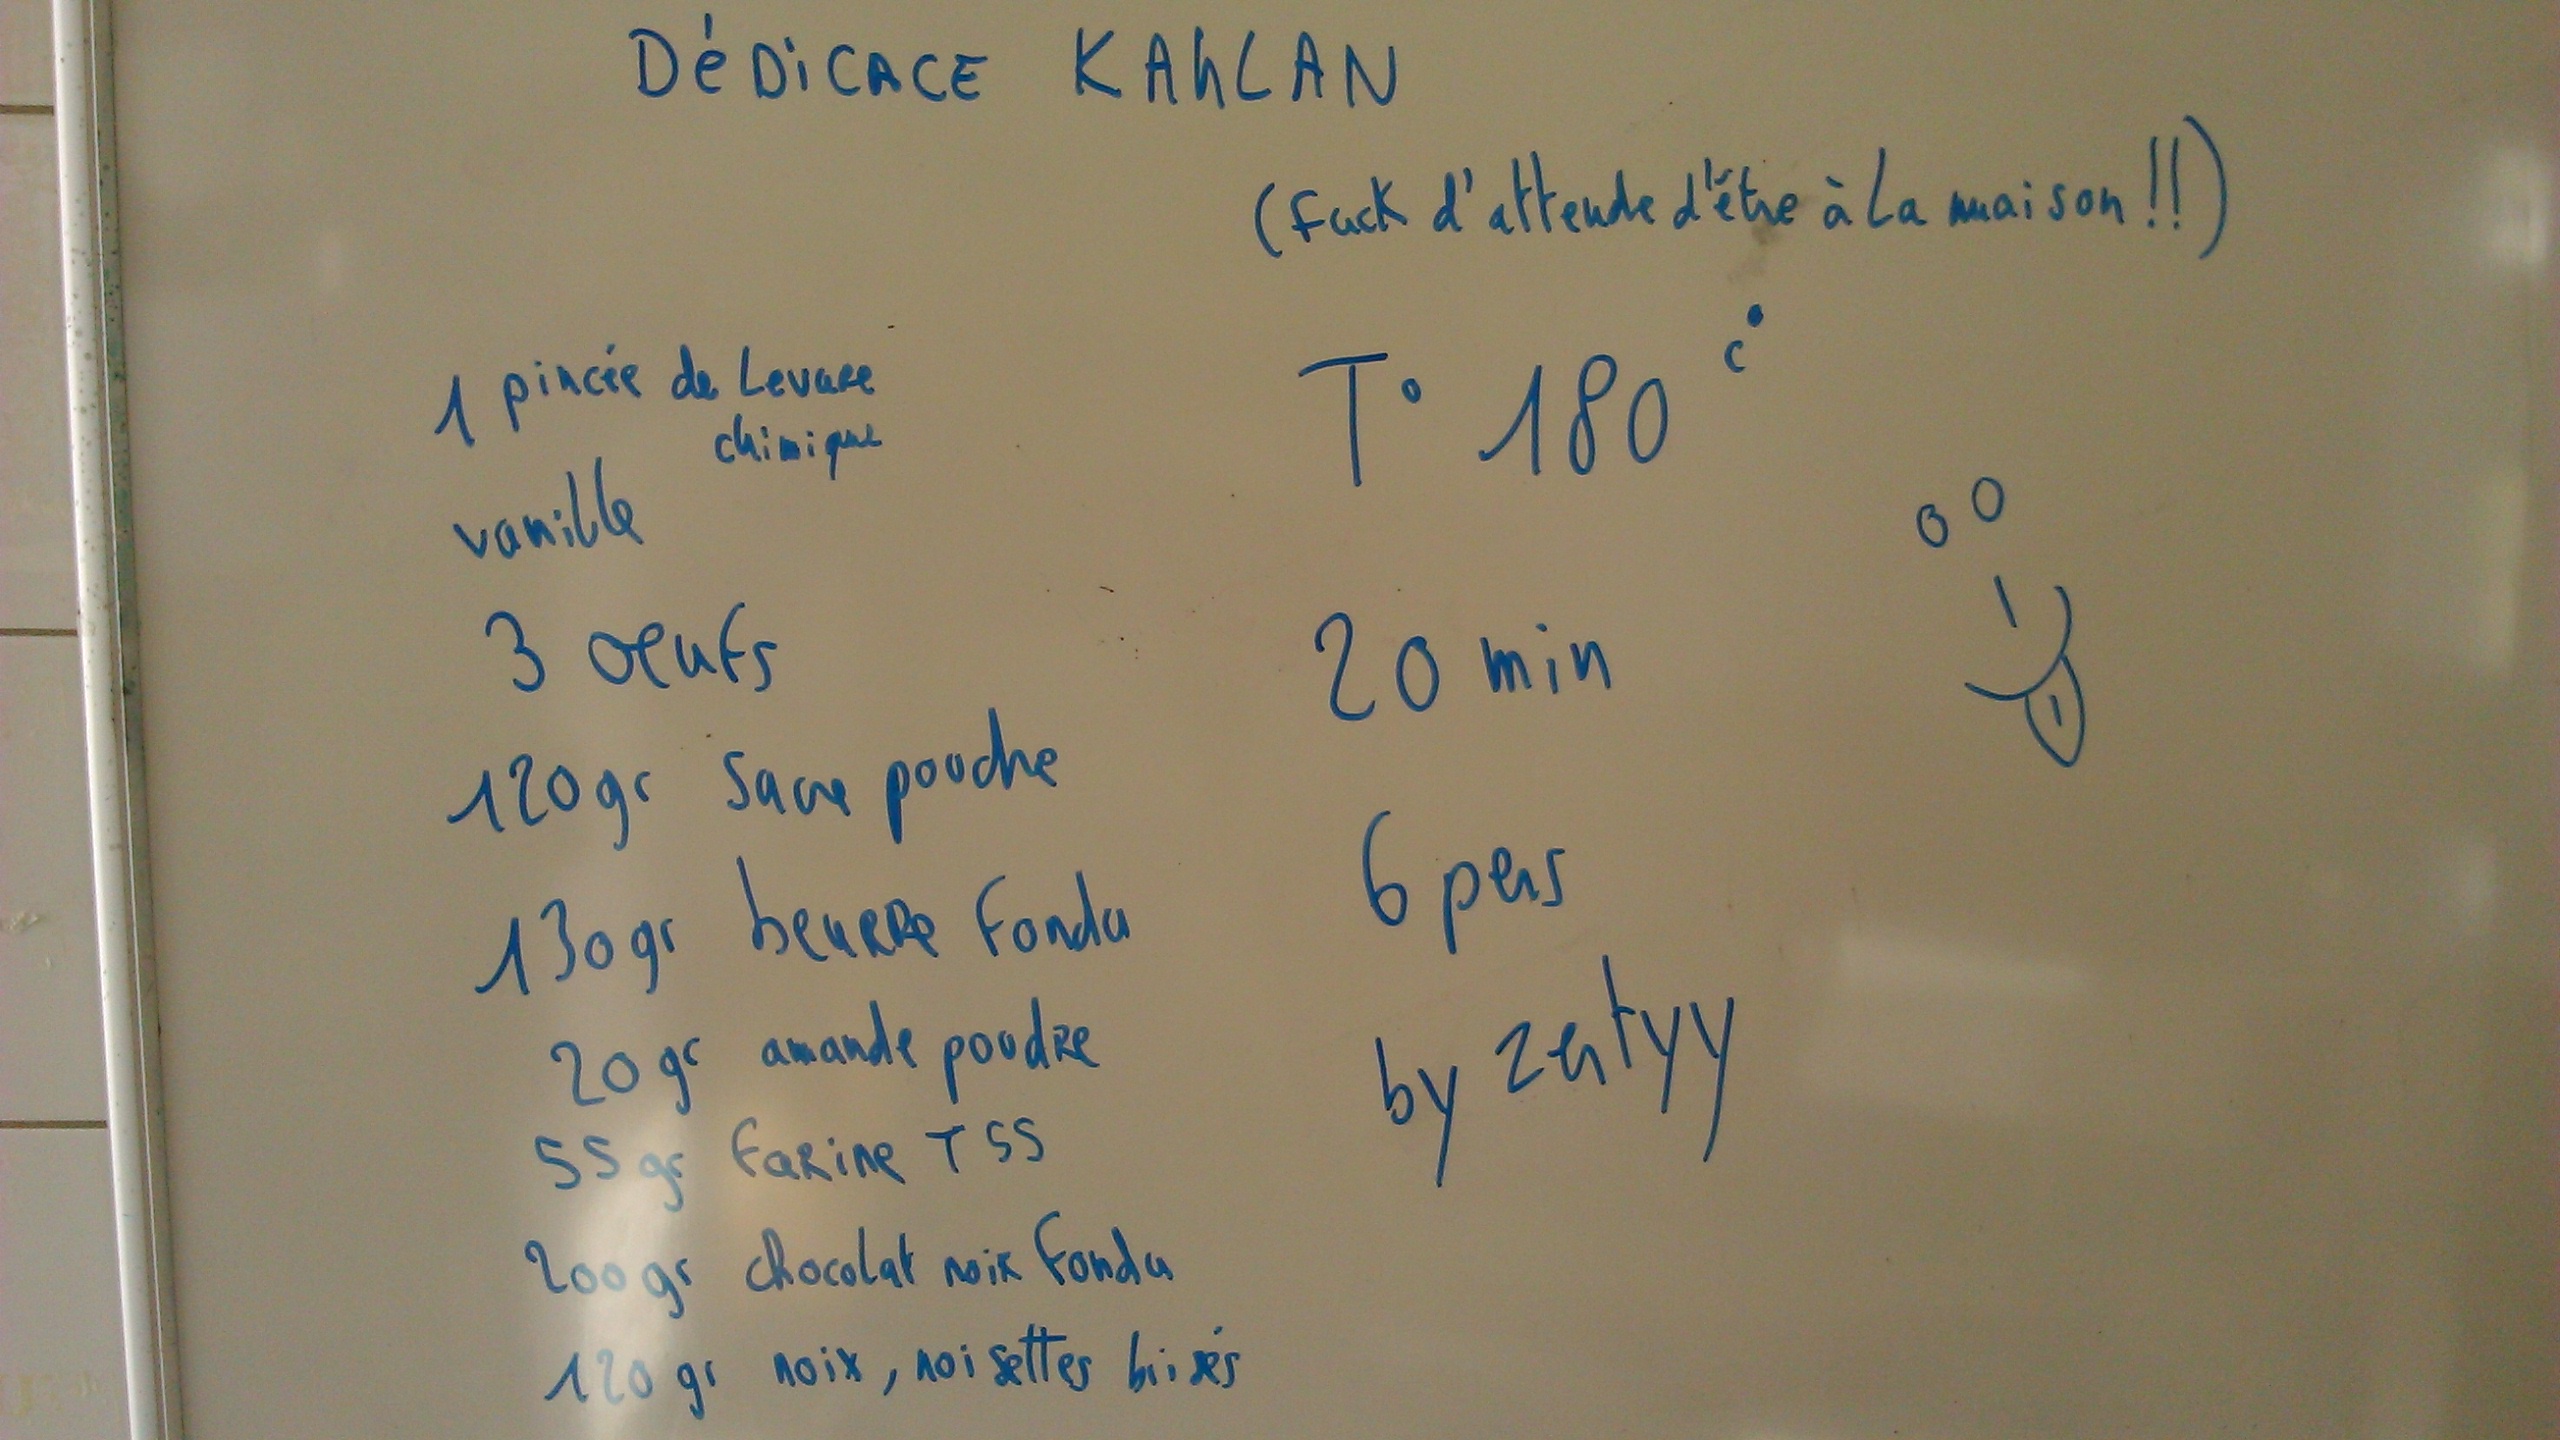 DéDiCACE KAhLAN
(Fuck d'attende d'être à La maison !!)
1 pincée de Levure
chimique
vanille
3 oeufs
120 gr sucre poudre
130 gr beurre fondu
20 gr amande poudre
55 gr farine T55
200 gr chocolat noir fondu
120 gr noix, noisettes brisés
T° 180 c°
20 min
6 pers
by zertyy